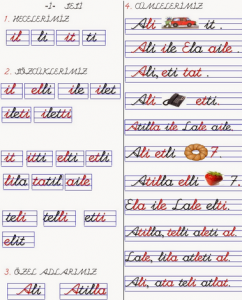 -1- SESİ
1. HECELERİMİZ
il li it ti
2. SÖZCÜKLERİMİZ
il elli ile ilet
ileti iletti
it itti etti etli
lila tatil aile
teli telli etti
elit
3. ÖZEL ADLARIMIZ
Ali Atilla
4. CÜMLELERİMİZ
Ali it .
Ali ile Ela aile .
Ali, eti tat .
Ali etti.
Atilla ile Lale aile.
Ali etli 7.
Atilla elli 7.
Ela ile Lale elti.
Atilla, telli aleti al.
Lale, lila atleti al.
Ali, ata teli atlat.